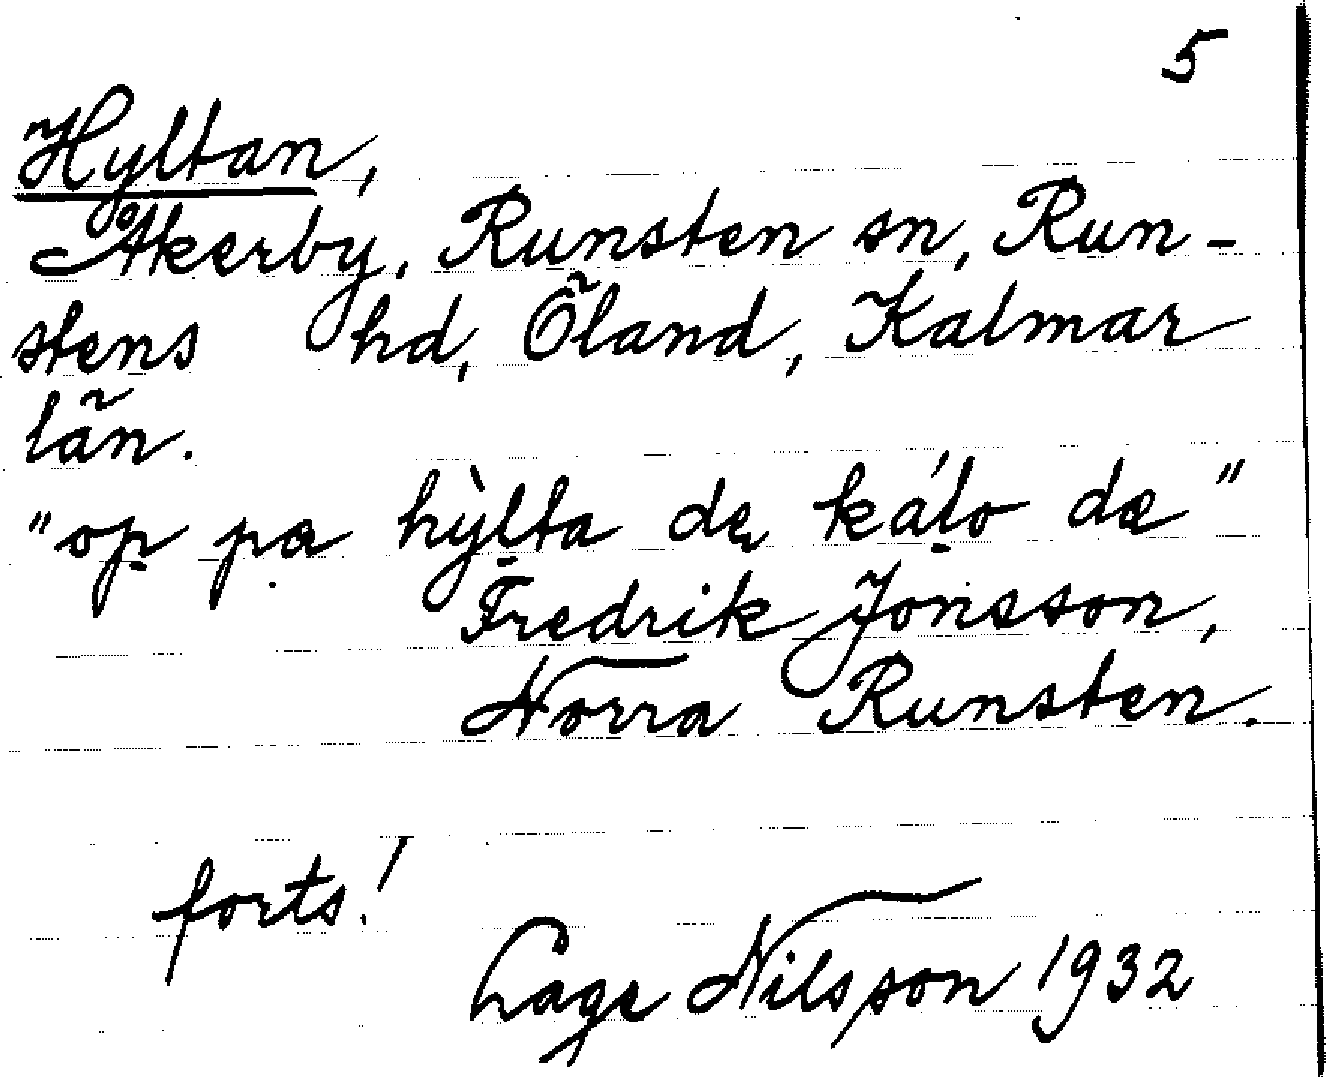 5
Hyltan,
Åkerby, Runsten sn, Run-
stens hd, Öland, Kalmar
län.
"op pa hỳlta dę kálo dæ"
Fredrik Jonsson,
Norra Runsten.
forts.!
Lage Nilsson 1932